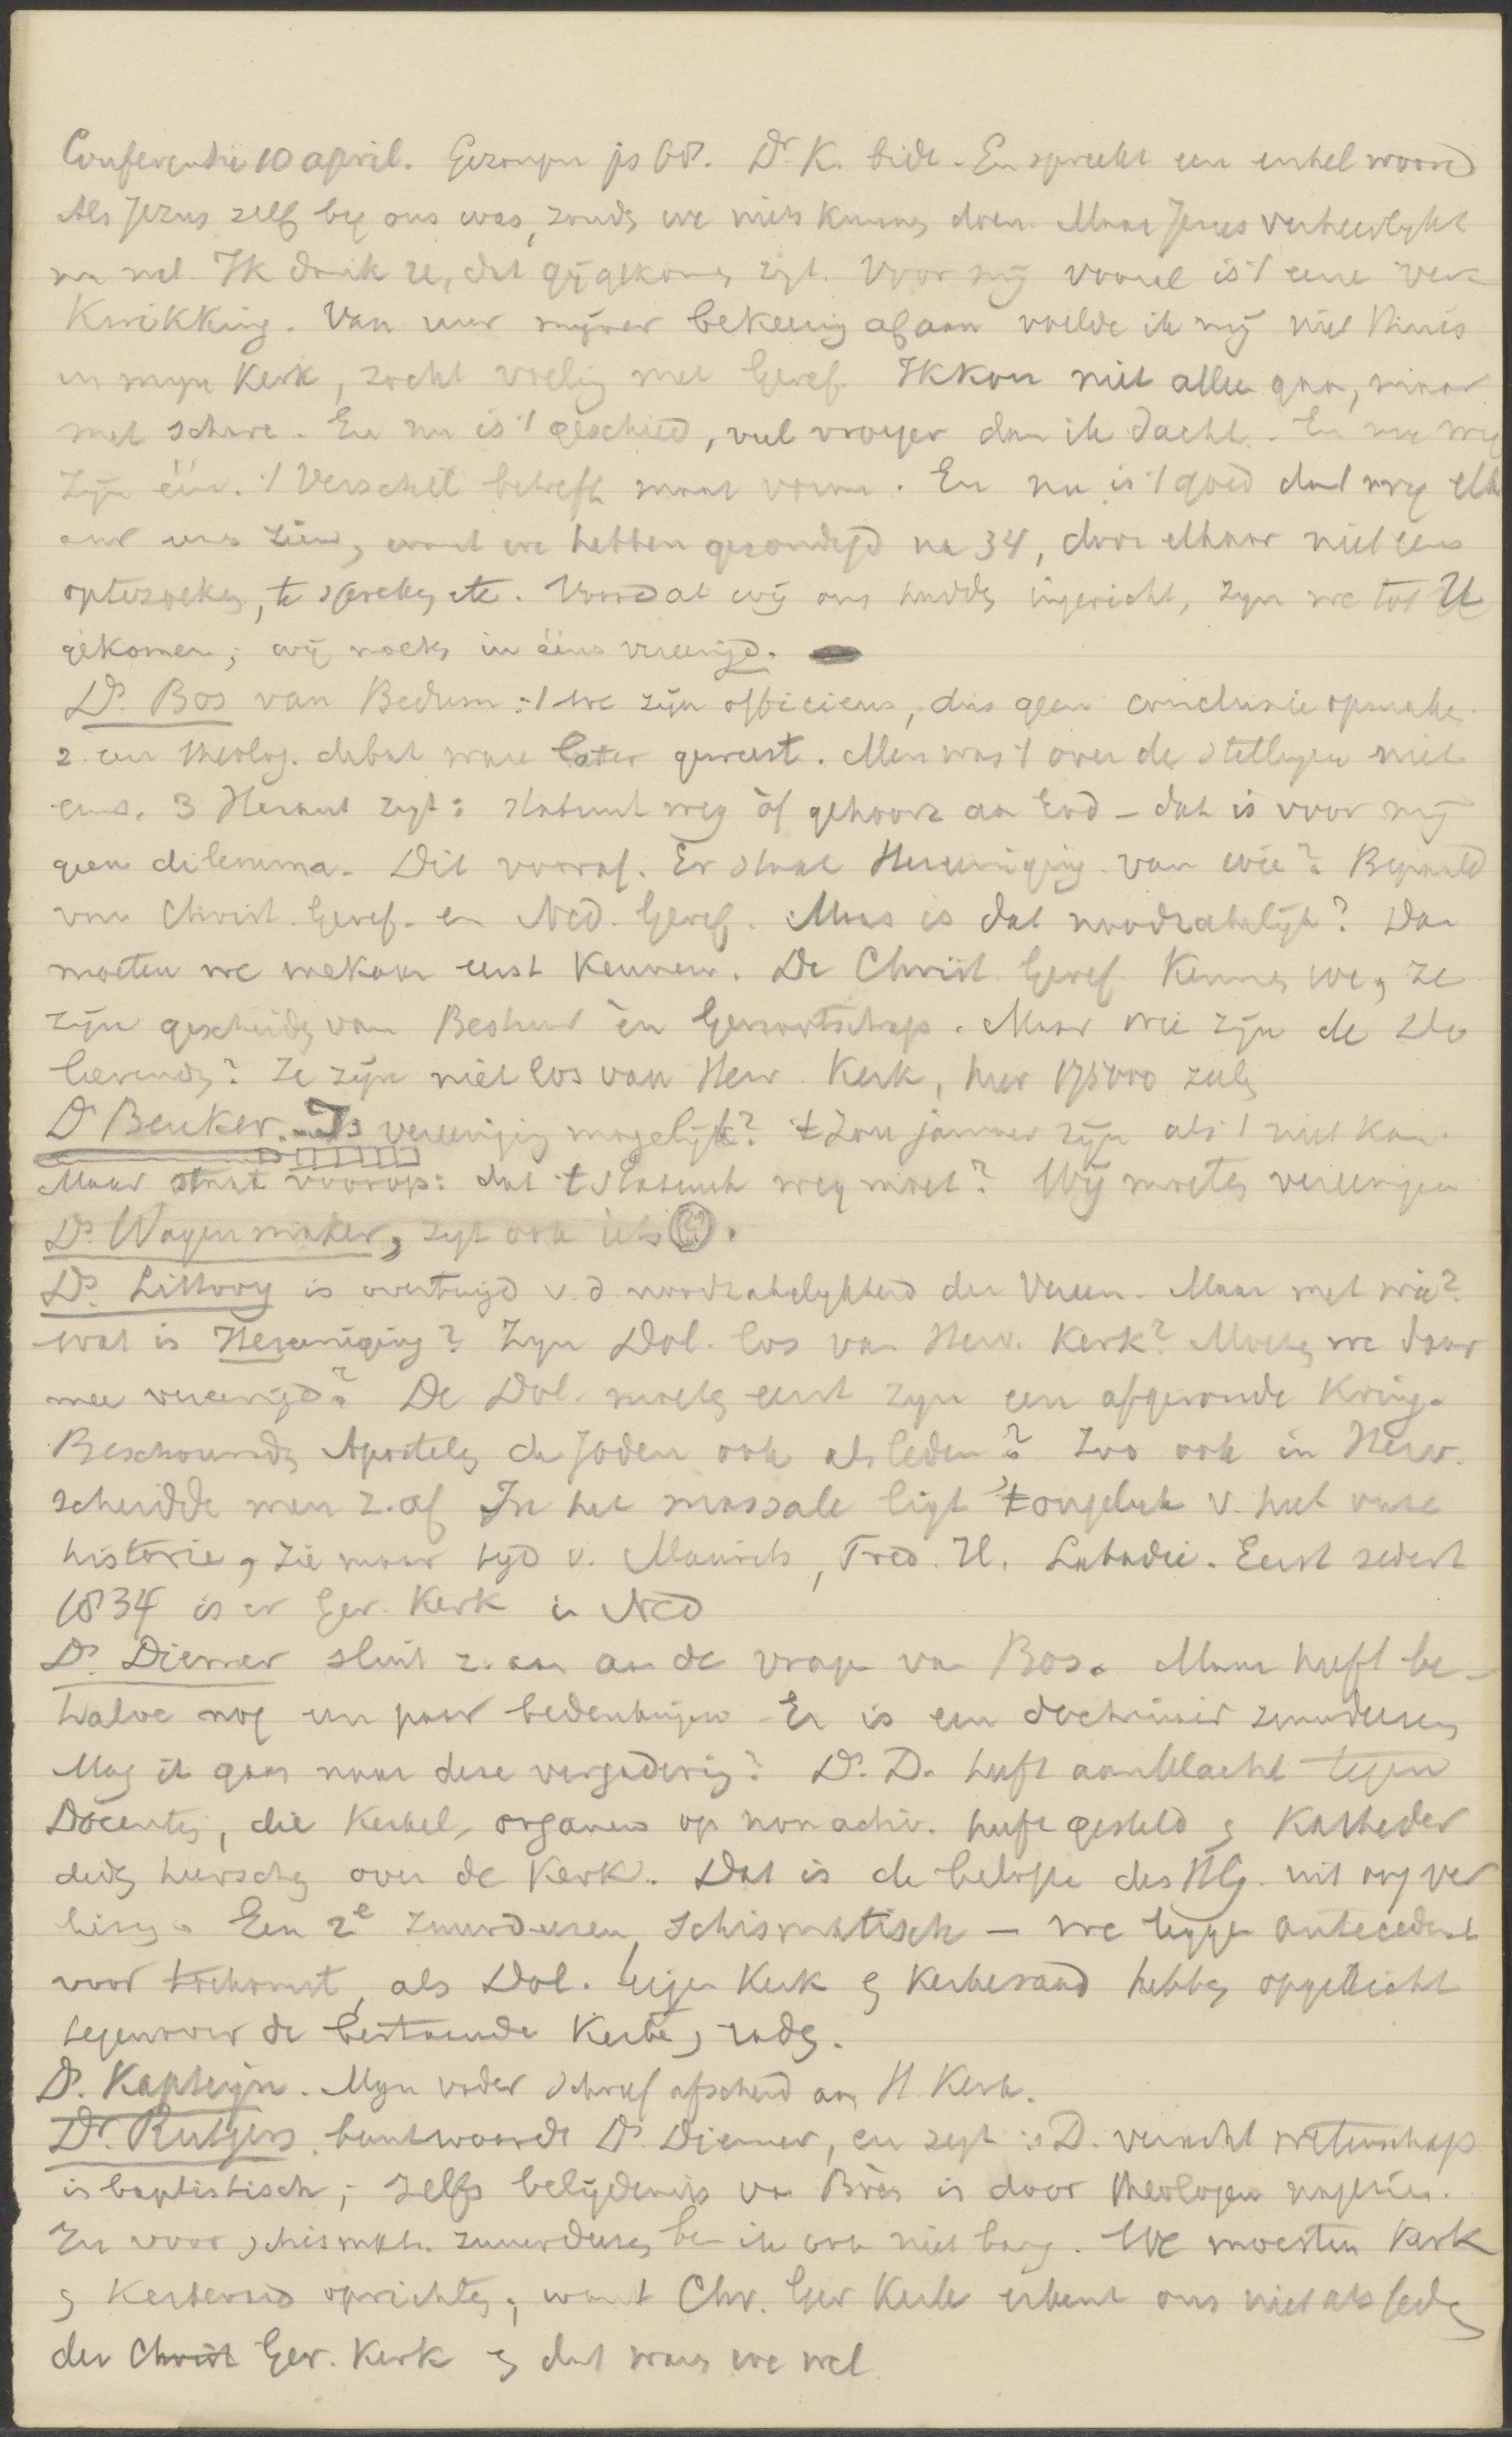 Conferentie 10 april. Gezongen ps 68. Dr. K. bidt. En spreekt een enkel woord
Als Jezus zelf bij ons was, zoudn we niets kunnen doen. Maar Jezus verheerlijkt
nu wel. Ik dank ze, dat gij gekomen zijt. Voor mij vooral is 't eene ver
kwikking. Van uur mijner bekeering af aan voelde ik mij niet thuis
in mijn Kerk, zocht voeling met Geref. Ik kon niet alleen gaan, maar
met schare. En nu is 't geschied, veel vroeger dan ik dacht. En nu wij
zijn één. 't Verschil betreft maar vorm. En nu is 't goed dat wij elk
aar eens zien, want we hebben gezondigd na 34, door elkaar niet eens
optezoeken, te spreken etc. Voordat wij ons hadden ingericht, zijn we tot U
gekomen; wij moeten in eens vereenigd.
Ds. Bos van Bedum: 1 we zijn officieus, dus geen conclusie opmaken.
2. een theolog. debat ware beter geweest. Men was 't over de stellingen niet
eens. 3 Heraut zegt: statuut weg òf gehoorz aan God – dat is voor mij
geen dilemma. Dit vooraf. Er staat Hereeniging. van wie? Bepaald
van Christ. Geref. en Ned. Geref. Maar is dat noodzakelijk? Dan
moeten we mekaar eerst kennen. De Christ. Geref. kennen we, ze
zijn gescheiden van Bestuur èn Genootschap. Maar wie zijn de Do
leerenden? Ze zijn niet los van Herv. Kerk, hier 175000 zieln
Ds Beuker. Is vereeniging mogelijk? 't Zou jammer zijn als 't niet kan.
Maar staat voorop: dat 't Statuut weg moet? Wij moeten vereenigen
Ds. Wagenmaker, zegt ook iets (?).
Ds. Littooy is overtuigd v. d noodzakelijkheid der Vereen. Maar met wie?
wat is Hereeniging? Zijn Dol. los van Herv. Kerk? Moeten we daar
mee vereenigd? De Dol. moeten eerst zijn een afgeronde Kring.
Beschouwden Apostelen de Joden ook als leden? Zoo ook in Herv.
scheidde men z. af In het massale ligt 't ongeluk v. heel onze
historie, zie maar tijd v. Maurits, Fred. H. Labadie. Eerst sedert
1834 is er Ger. Kerk in Ned
Ds. Diemer sluit z. aan aan de vrage van Bos. Maar heeft be-
halve nog een paar bedenkingen Er is een doctrinair zuurdeesem
Mag ik gaan naar deze vergadering? Ds. D. heeft aanklacht tegen
Docenten, die Kerkel. organen op nonactiv. heeft gesteld & Katheder
deden heerschen over de Kerk. Dat is de belofte des HG. uit oog ver
liezen. Een 2e zuurdeesem, schismatisch – we leggen antecedent
voor toekomst, als Dol. eigen Kerk & Kerkeraad hebben opgericht
tegenover de bestaande Kerke raden.
Ds. Kapteyn. Mijn vader schreef afscheid aan H Kerk.
Dr. Rutgers. beantwoordde Ds Diemer, en zegt: D. veracht wetenschap
is baptistisch; zelfs belijdenis van Brès is door theologen nagezien.
En voor schismat. zuurdeesem ben ik ook niet bang. We moesten Kerk
& Kerkeraad oprichten, want Chr. Ger Kerk erkent ons niet als leden
der Christ Ger. Kerk & dat waren we wel